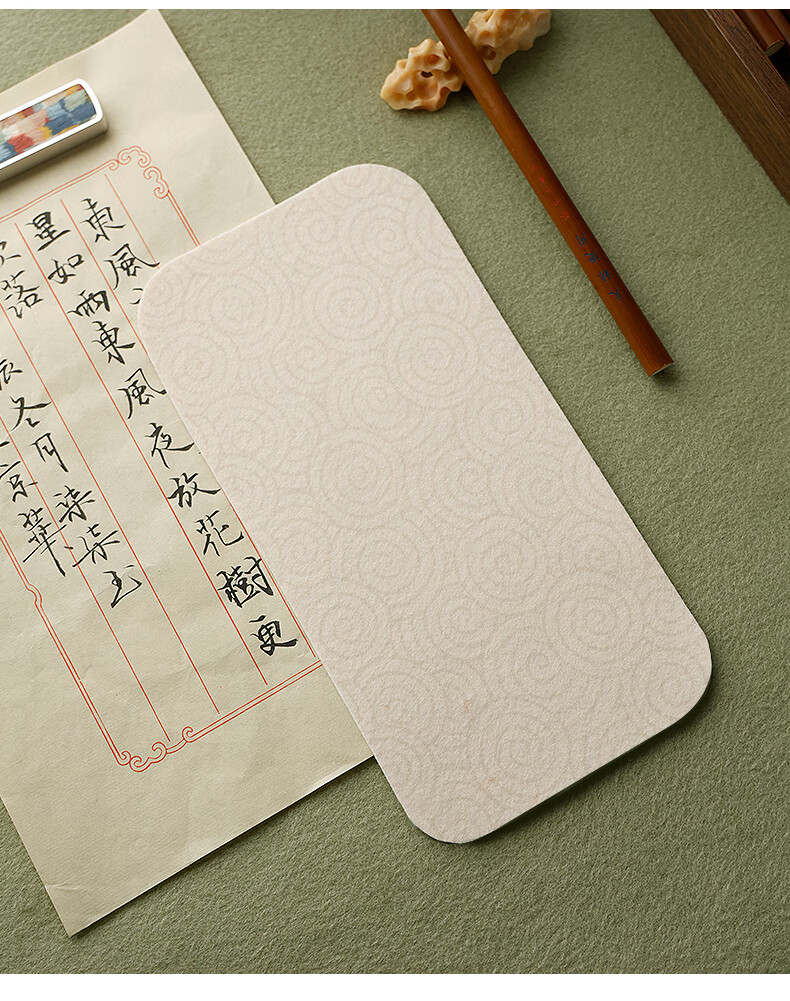 東風
星如雨東風夜放花樹更
落
冬月柒柒玉
京華